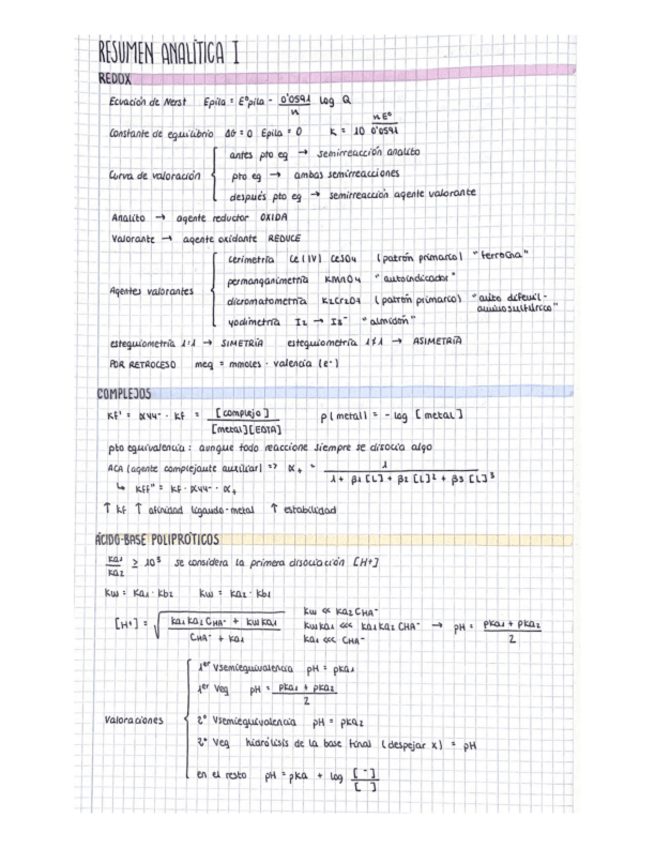 RESUMEN ANALÍTICA I
REDOX
Ecuación de Nerst Epila = E°pila - 0'0591/n log Q
Constante de equilibrio ΔG = 0 Epila = 0 K = 10^(nE°/0'0591)
Curva de valoración
antes pto eq → semirreacción analito
pto eq → ambas semirreacciones
después pto eq → semirreacción agente valorante
Analito → agente reductor OXIDA
Valorante → agente oxidante REDUCE
Agentes valorantes
cerimetría Ce(IV) CeSO4 (patrón primario) "ferroína"
permanganimetría KMnO4 "autoindicador"
dicromatometría K2Cr2O7 (patrón primario) "ácido difenil-aminosulfúrico"
yodimetría I2 → I3⁻ "almidón"
estequiometría 1:1 → SIMETRÍA estequiometría 1≠1 → ASIMETRÍA
POR RETROCESO meq = mmoles · valencia (e-)
COMPLEJOS
Kf' = αY4- · Kf = [complejo]/[metal][EDTA] p(metal) = - log [metal]
pto equivalencia: aunque todo reaccione siempre se disocia algo
ACA (agente complejante auxiliar) => α+ = 1/(1 + β1[L] + β2[L]² + β3[L]³)
↳ Kff" = Kf · αY4- · α+
↑ Kf ↑ afinidad ligando-metal ↑ estabilidad
ÁCIDO-BASE POLIPRÓTICOS
Ka1/Ka2 ≥ 10³ se considera la primera disociación [H+]
Kw = Ka1 · Kb2 Kw = Ka2 · Kb1
[H+] = √((Ka1Ka2CHA⁻ + KwKa1)/(CHA⁻ + Ka1))
Kw << Ka2CHA⁻
KwKa1 <<< Ka1Ka2CHA⁻ → pH = (pKa1 + pKa2)/2
Ka1 <<< CHA⁻
Valoraciones
1er Vsemiequivalencia pH = pKa1
1er Veq pH = (pKa1 + pKa2)/2
2º Vsemiequivalencia pH = pKa2
2º Veq hidrólisis de la base final (despejar x) = pH
en el resto pH = pKa + log [-]/[ ]